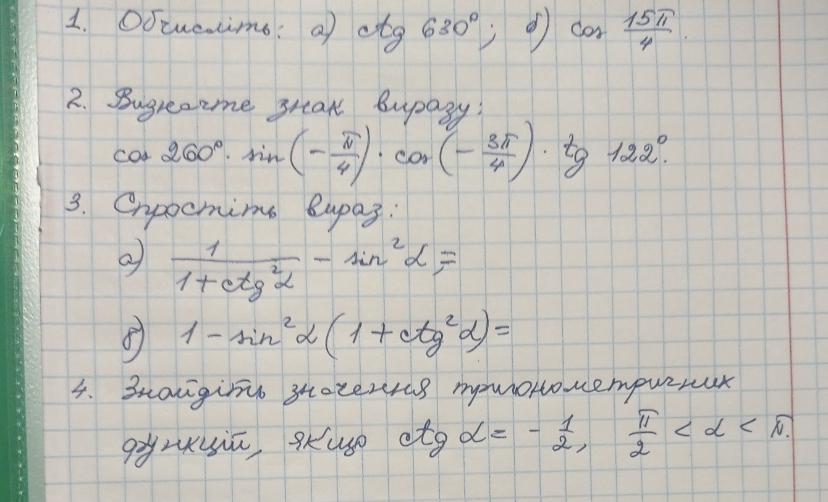 1. Обчисліть: а) ctg 630°; б) cos 15π/4.
2. Визначте знак виразу:
cos 260° · sin(-π/4) · cos(-3π/4) · tg 122°.
3. Спростіть вираз:
а) 1/(1+ctg²α) - sin²α;=
б) 1 - sin²α(1+ctg²α)=
4. Знайдіть значення тригонометричних
функцій, якщо ctg α = -1/2, π/2 < α < π.